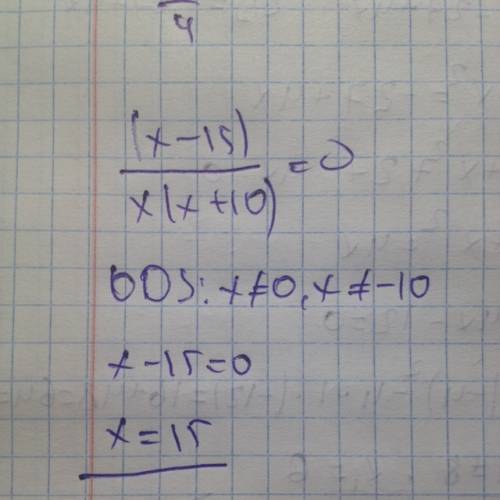 4
(x-15)
x(x+10) =0
ODS: x≠0, x≠-10
x-15=0
x=15